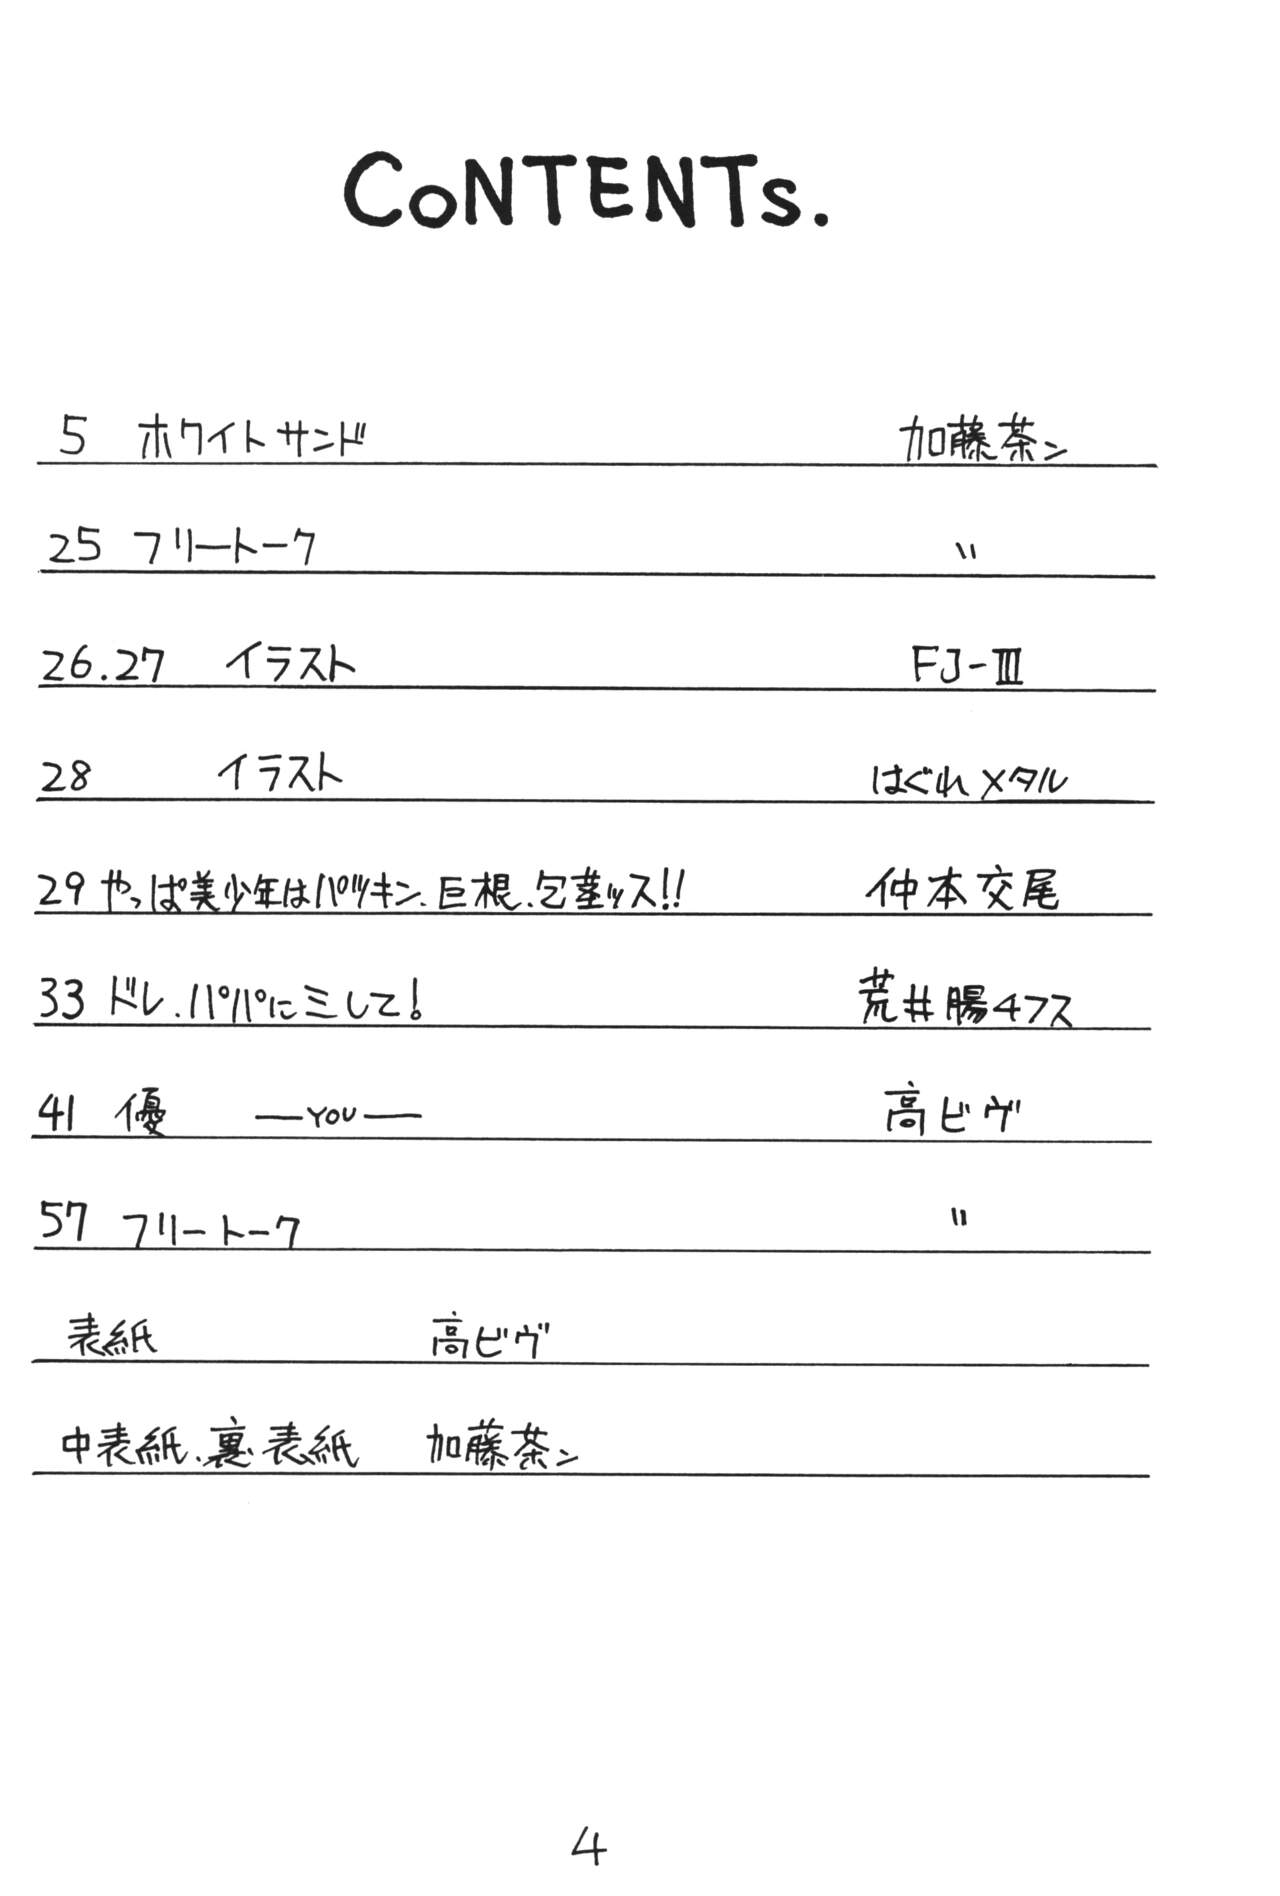 CoNTENTs.
5 ホワイトサンド 加藤茶ン
25 フリートーク 〃
26.27 イラスト FJ-Ⅲ
28 イラスト はぐれメタル
29 やっぱ美少年はパツキン、巨根、包茎ッス!!  仲本交尾
33 ドレ、パパに三して! 荒井腸4フス
41 優 ―YOU― 高ビヴ
57 フリートーク 〃
表紙 高ビヴ
中表紙、裏表紙 加藤茶ン
4